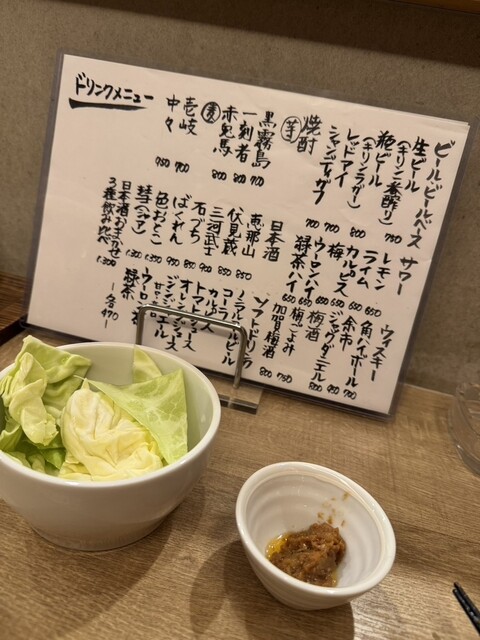 ドリンクメニュー
ビール・ビールベース
生ビール
(キリン一番搾り) 750
瓶ビール
(キリンラガー) 800
レッドアイ 700
シャンディガフ 700
焼酎
芋
黒霧島 700
一刻者 800
赤兎馬 800
麦
壱岐 700
中々 750
サワー
レモン 650
ライム 650
カルピス 650
梅 650
ウーロンハイ 650
緑茶ハイ 650
日本酒
恵那山 850
伏見蔵 850
三河武士
石づち
ばくれん 950
色おとこ 1,300
彗(シァア) 1,300
日本酒おまかせ
3種飲み比べ 1,300
ウィスキー
角ハイボール 700
余市 950
ジャックダニエル 800
梅酒
梅ごよみ 750
加賀梅酒 800
ソフトドリンク
ノンアルコールビール
コーラ
カルピス
トマトジュース
オレンジジュース
ジンジャーエール
ウーロン茶
緑茶
各470